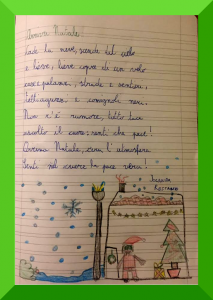 Natale
Cade la neve, scende dal cielo
e lieve, lieve copre di un velo
case e palazzi, strade e sentieri,
dell'acquazzo, e comignoli neri.
Non c'è rumore, tutto tace
ascolta il cuore: senti che pace!
Questo Natale, crea l'atmosfera
Senti nel cuore la pace vera!